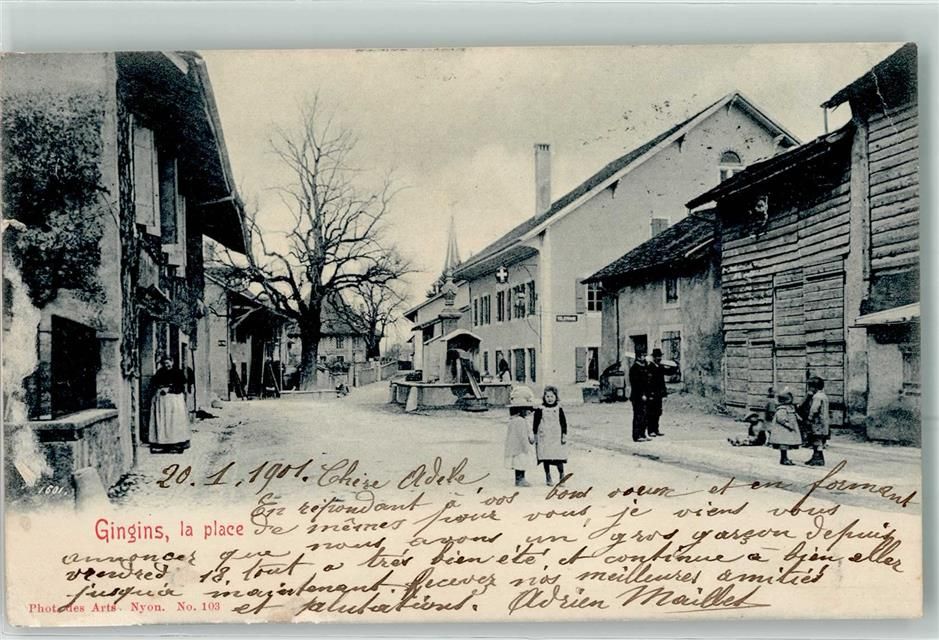 TELEPHONE
1601.
20.1.1901. Chère Adèle
En répondant à vos bons voeux et en formant
Gingins, la place
de mêmes pour vous, je viens vous
annoncer que nous avons un gros garçon depuis
vendredi 18, tout a très bien été, et continue à bien aller
jusqu'à maintenant. Recevez nos meilleures amitiés
et salutations. Adrien Maillet
Photo des Arts. Nyon. No. 103